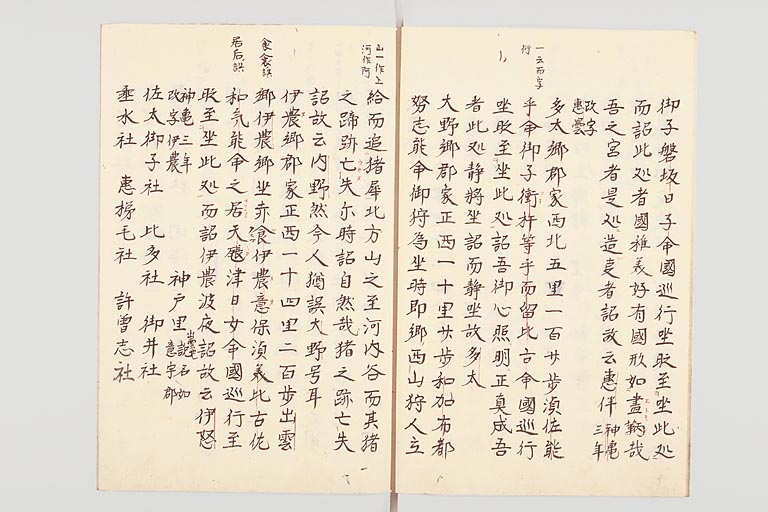 一云而字
衍
御子磐坂日子命國巡行坐時至坐此処
而詔此処者國稚美好有國形如畫鞆哉
吾之宮者是処造吏者詔故云惠伴神亀三年
改字惠曇
多太郷郡家西北五里一百廿歩須佐能
乎命御子衝杵等乎而留比古命國巡行
坐時至坐此処詔吾御心照明正真成吾
者此処静將坐詔而静坐故云多太
大野郷郡家正西一十里廿歩和加布都
努志能命御狩為坐時即郷西山狩人立
山一作上
河作阿
給而追猪犀北方山之至河内谷而其猪
之蹄跡亡失尓時詔自然哉猪之跡亡失
詔故云内野然今人猶誤大野号耳
伊農郷郡家正西一十四里二百歩出雲
食飡誤
郷伊農郷坐赤飡伊農意保須美比古佐
和気能命之居天𤭖津日女命國巡行至
居后誤
時至坐此処而詔伊農波夜詔故云伊怒
神亀三年改字伊農
神戸里出雲也説名如意宇郡
佐太御子社 比多社 御井社
垂水社 惠梯毛社 許曽志社